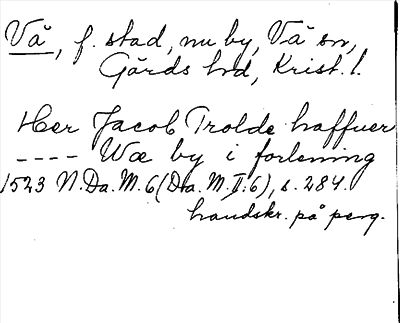 Vä, f. stad, nu by, Vä sn,
Gärds hd, Krist. l.
Her Jacob Trolde haffuer
---- Wæ by i forlening
1523 N.Da.M. 6 (Da. M. II:6), s. 284.
handskr. på perg.